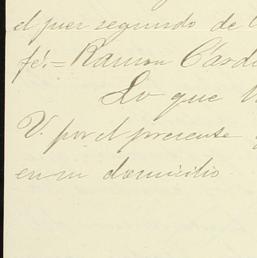 el juez segundo de
fé.= Ramon Card
Lo que
V. por el presente
en su domicilio